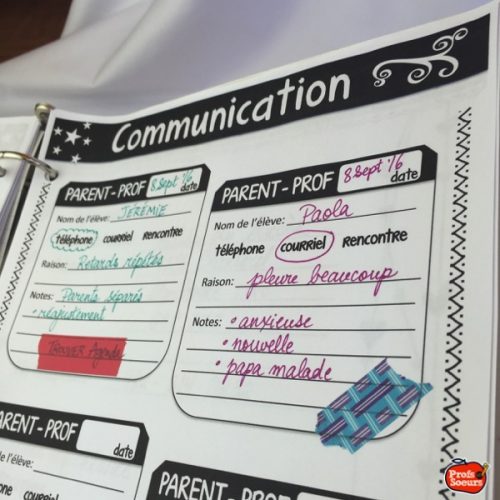 Communication
PARENT-PROF 8 sept '16 date
Nom de l'élève: JÉRÉMIE
téléphone courriel rencontre
Raison: Retards répétés
Notes: Parents séparés
• réajustement
TROUVER Agenda
PARENT-PROF 8 sept '16 date
Nom de l'élève: Paola
téléphone courriel rencontre
Raison: pleure beaucoup
Notes: • anxieuse
• nouvelle
• papa malade
PARENT-PROF date
Nom de l'élève:
téléphone courriel rencontre
PARENT-PROF date
Profs Soeurs